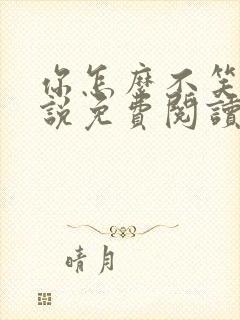 你怎麼不笑
說免費閱讀
晴月